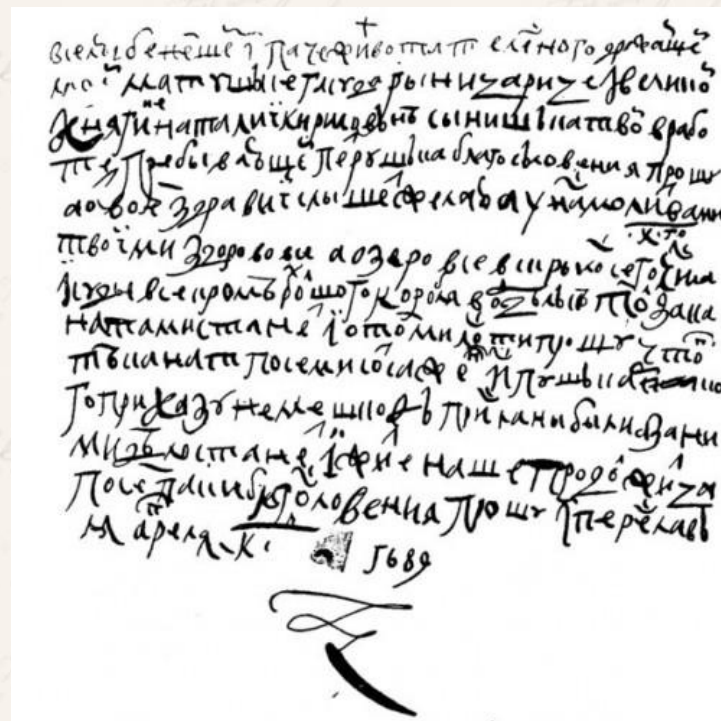 вселюбезнеишеи и паче живота телесного дражаишеи
моеи матушке гсдрыни царице и великои
княгине наталии кириловне сынишка твои в рабо
те пребывающеи петрушка благословения прошу
а о твоем здравии слышеть желаю а у нас молитвами
твоими здорово все а озеро все вскрылось сего к го числа
и суды все кромъ болшого корабля в отделке токо за кана
натами станет и о том милости прошу чтоб
те канаты по семисот сажен ис пушкарско
го приказу не мешкоф присланы были а за ними
дело станет и житие наше продолжитца
по сем паки благословения прошу ис переславля
апреля к
1689